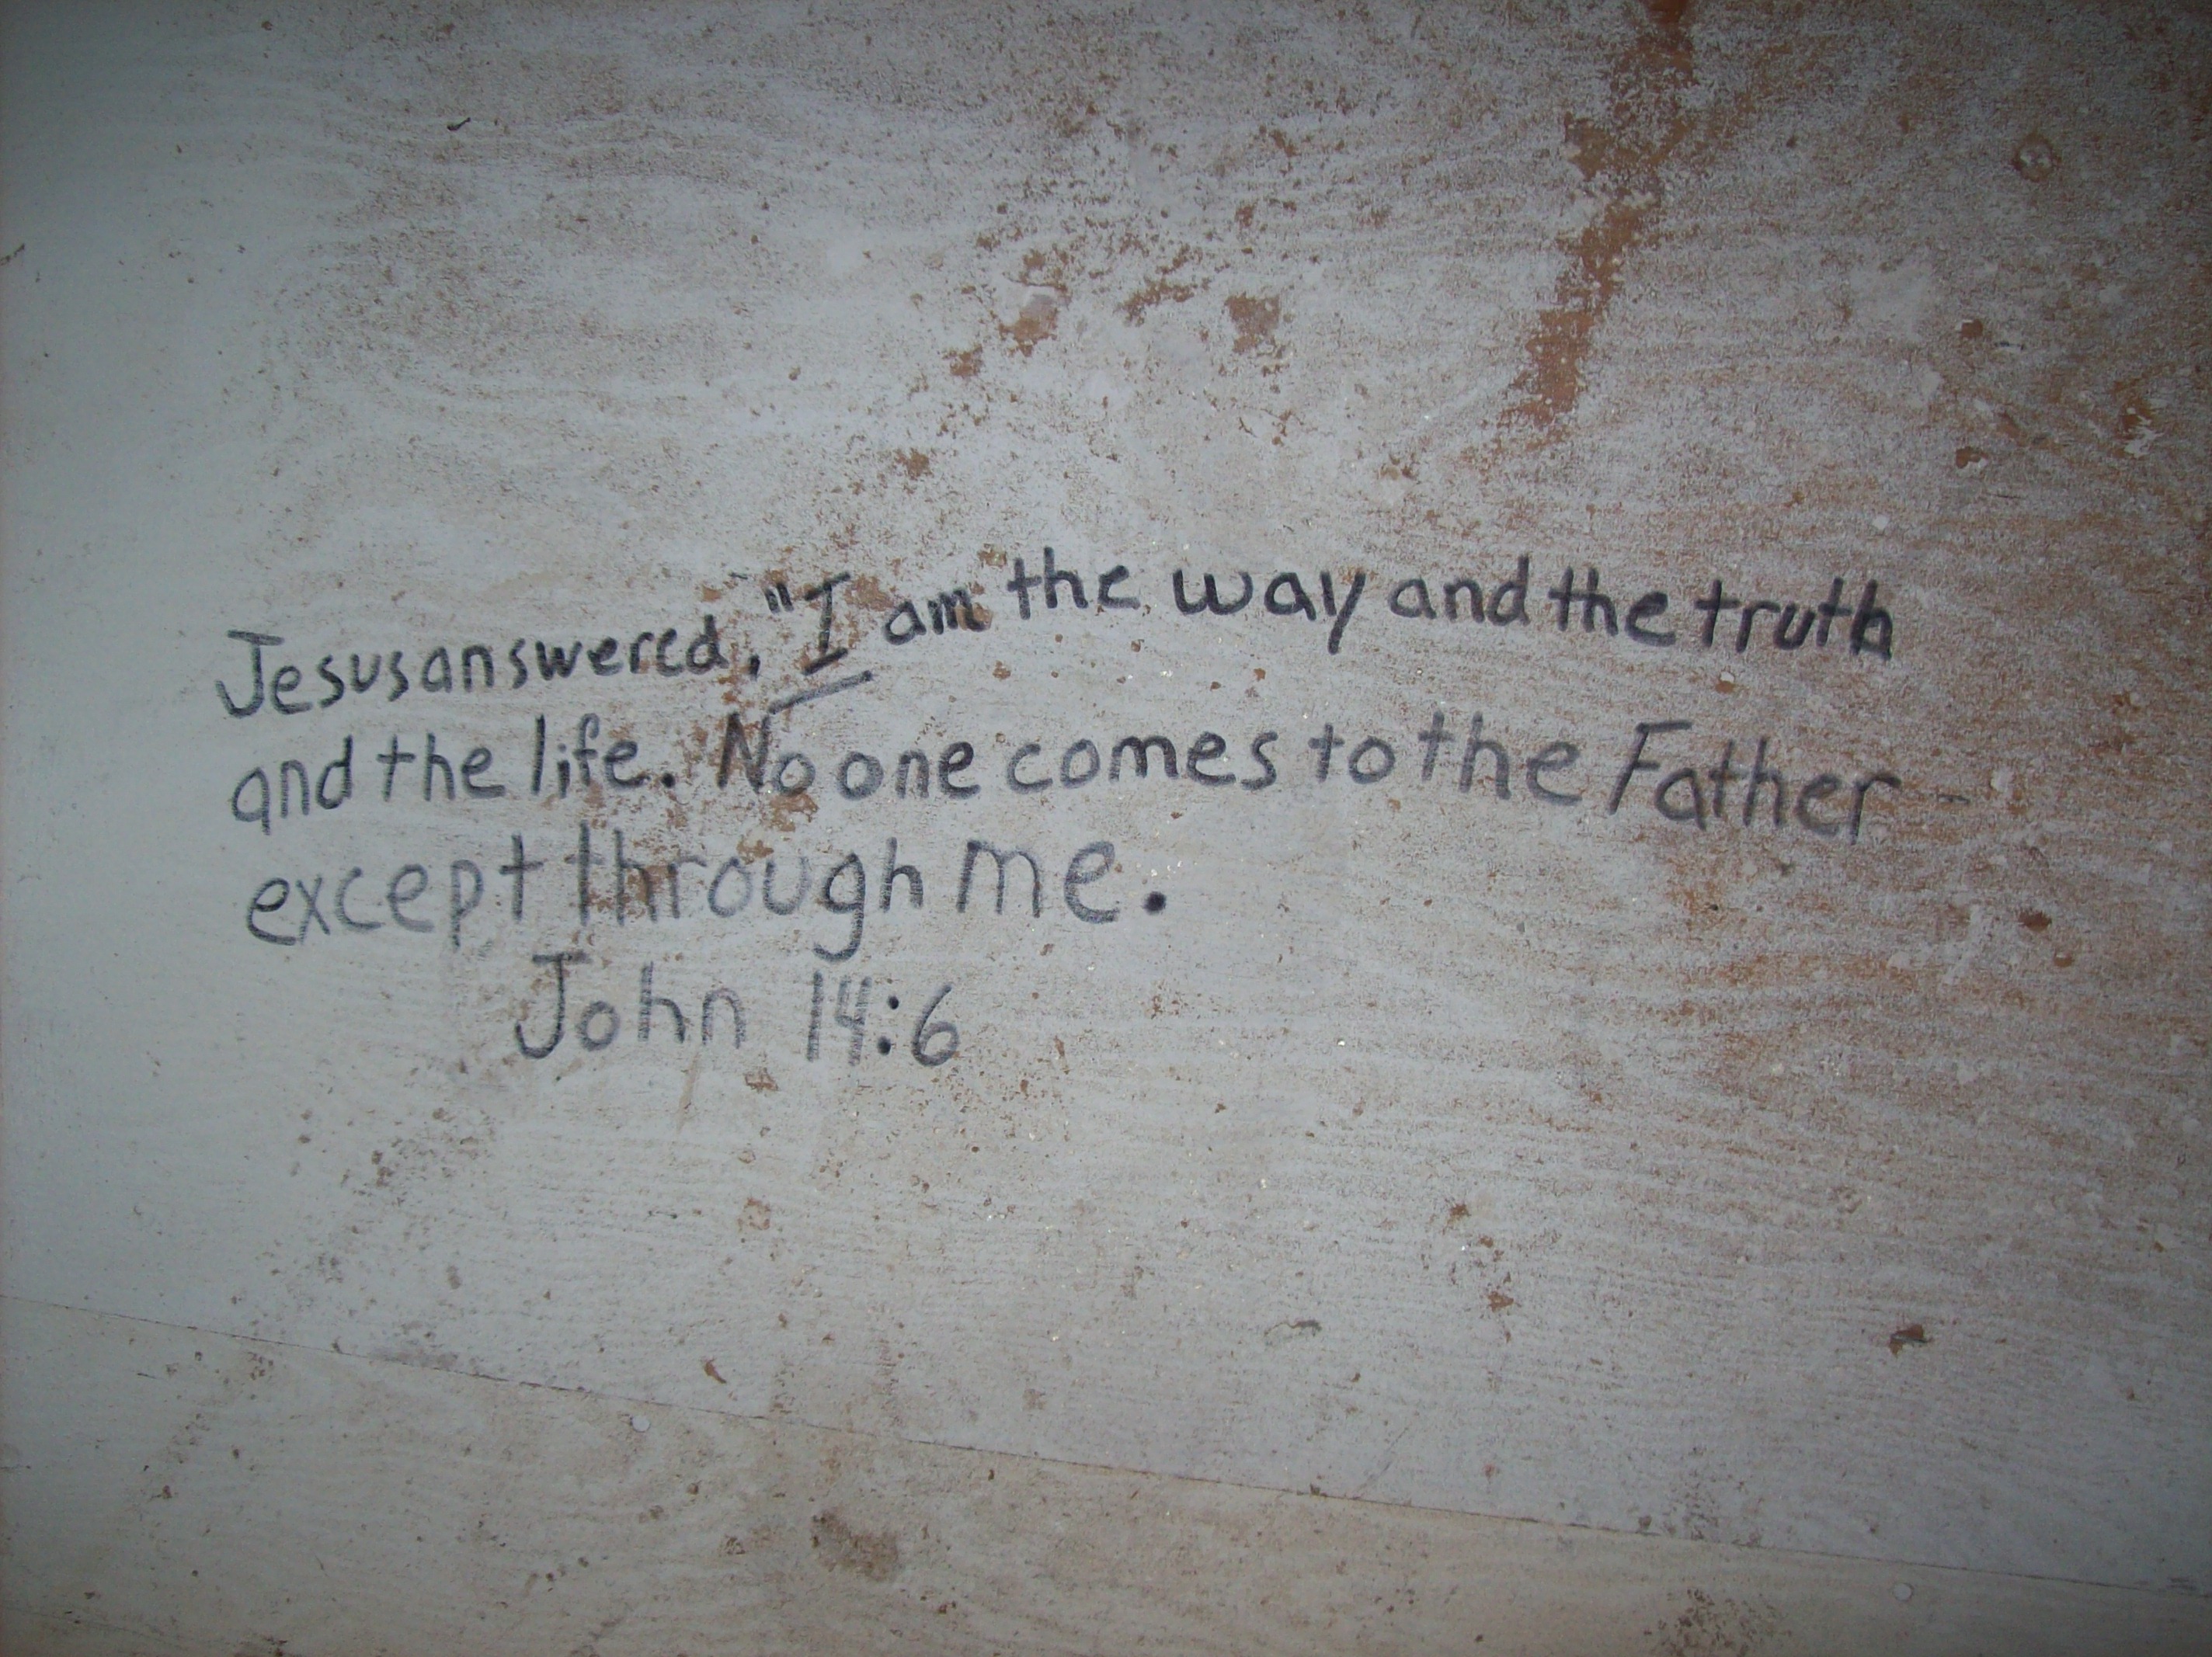 Jesus answered, "I am the way and the truth
and the life. No one comes to the Father -
except through me.
John 14:6